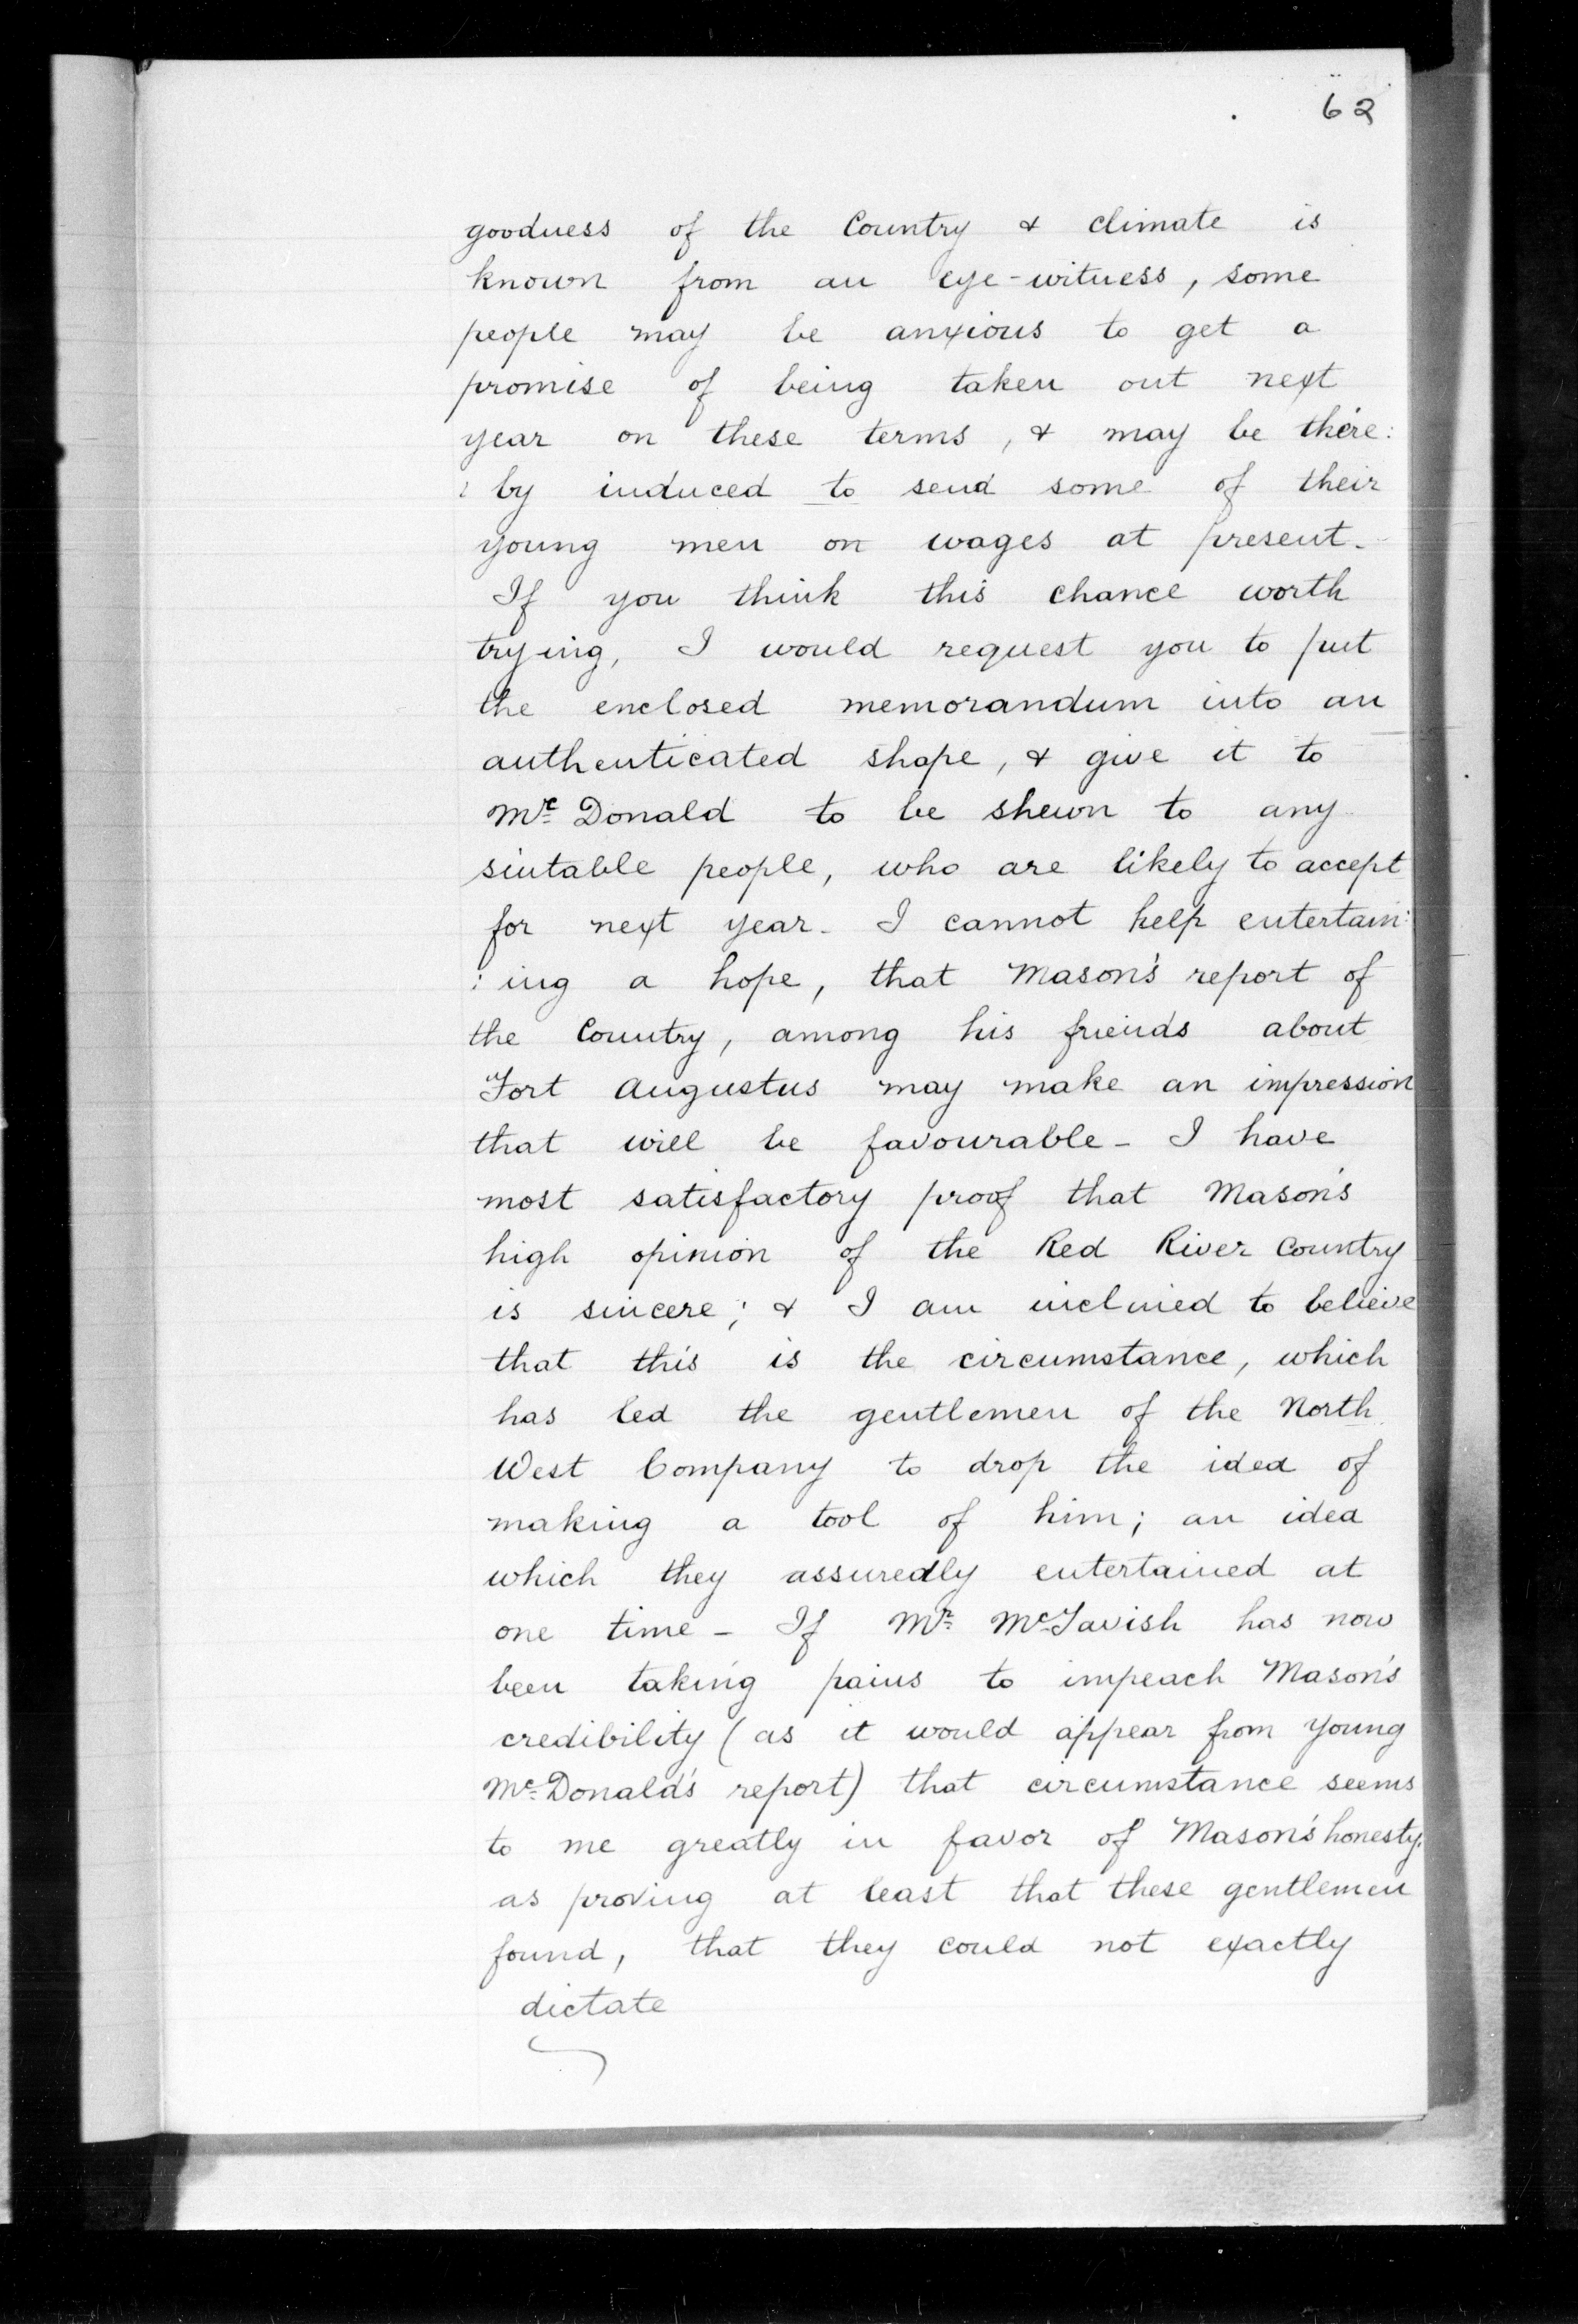 62
goodness of the Country & climate is
known from an eye-witness, some
people may be anxious to get a
promise of being taken out next
year on these terms, & may be there:
: by induced to send some of their
young men on wages at present.
If you think this chance worth
trying, I would request you to put
the enclosed memorandum into an
authenticated shape, & give it to
Mc Donald to be shewn to any
suitable people, who are likely to accept
for next year - I cannot help entertain:
: ing a hope, that Mason's report of
the Country, among his friends about
Fort Augustus may make an impression
that will be favourable - I have
most satisfactory proof that Mason's
high opinion of the Red River Country
is sincere; & I am inclined to believe
that this is the circumstance, which
has led the gentlemen of the North
West Company to drop the idea of
making a tool of him; an idea
which they assuredly entertained at
one time - If Mr McTavish has now
been taking pains to impeach Mason's
credibility (as it would appear from young
McDonald's report) that circumstance seems
to me greatly in favor of Mason's honesty,
as proving at least that these gentlemen
found, that they could not exactly
dictate